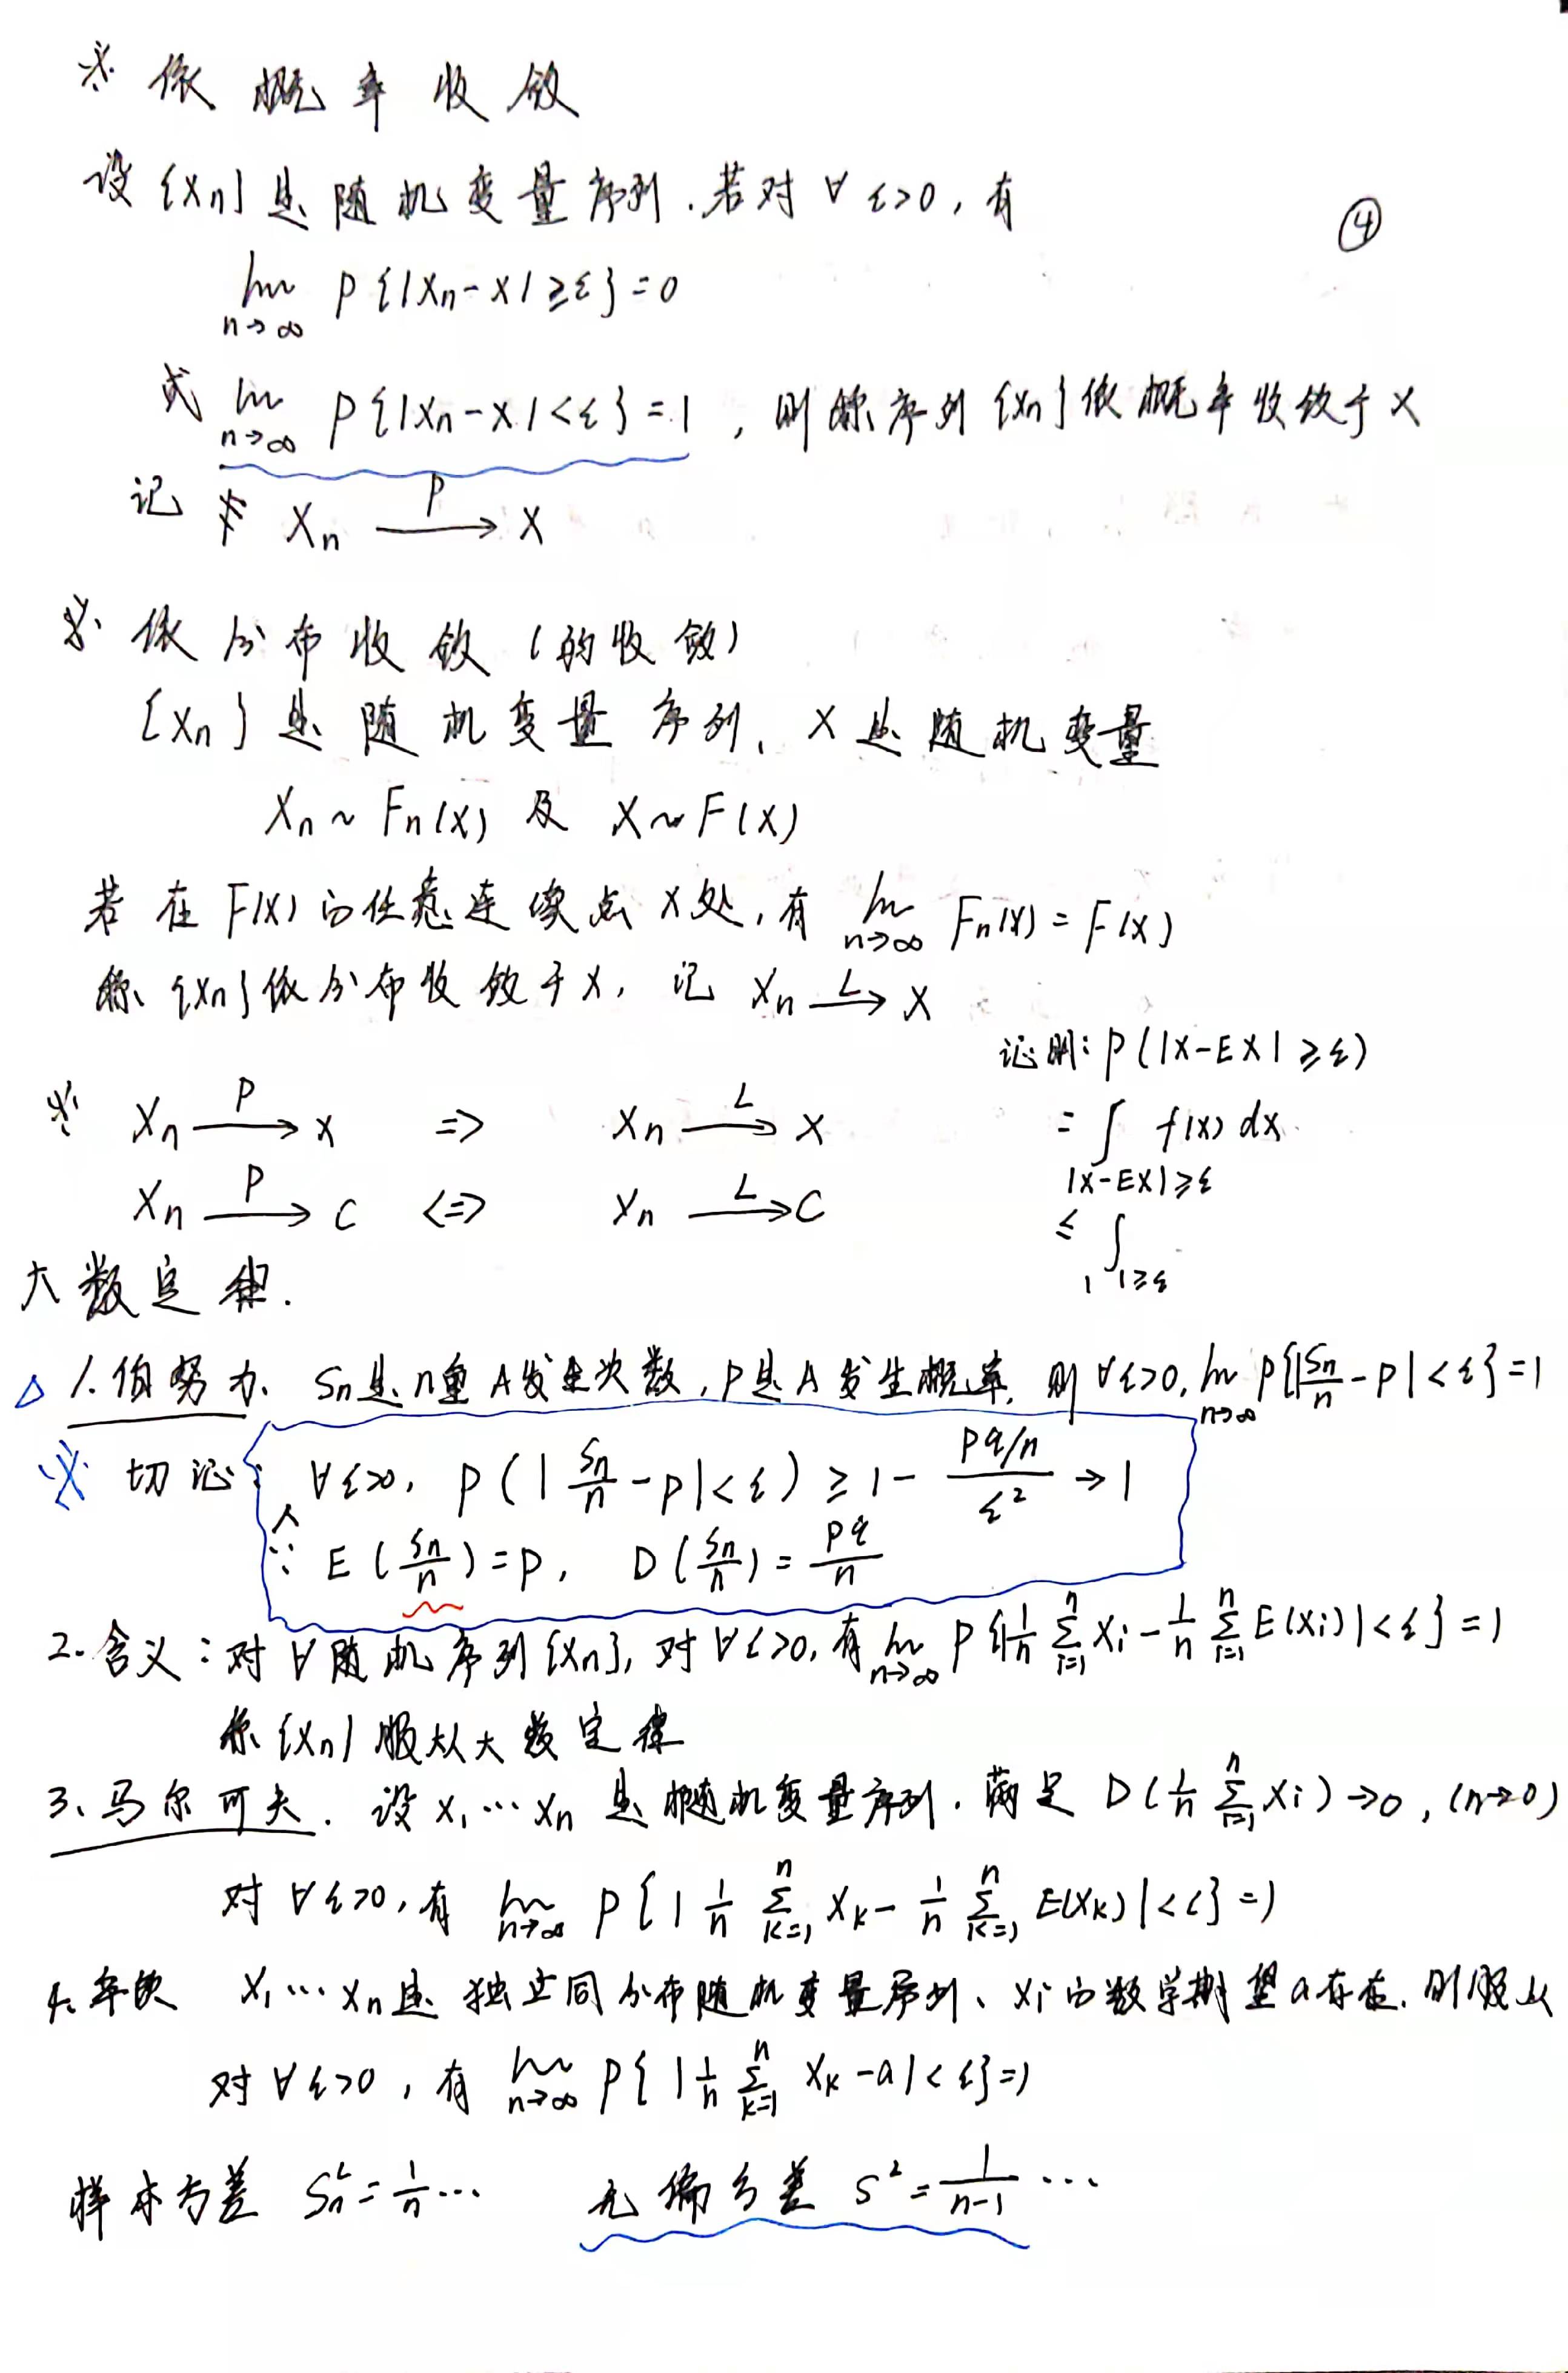 ※ 依概率收敛
设{Xn}是随机变量序列.若对∀ε>0,有
④
lim n→∞ P{|Xn-X|≥ε}=0
或 lim n→∞ P{|Xn-X|<ε}=1,则称序列{Xn}依概率收敛于X
记 Xn P→ X
※ 依分布收敛(的收敛)
{Xn}是随机变量序列,X是随机变量
Xn~Fn(x) 及 X~F(x)
若在F(x)的任意连续点x处,有 lim n→∞ Fn(x)=F(x)
称{Xn}依分布收敛于X,记 Xn L→ X
※ Xn P→ X ⇒ Xn L→ X
Xn P→ C ⇔ Xn L→ C
证明:P(|X-EX|≥ε)
=∫ f(x)dx
|X-EX|≥ε
≤∫
| |≥ε
大数定律.
△ 1.伯努力 Sn是n重A发生次数,P是A发生概率,则∀ε>0, lim n→∞ P{|Sn/n-P|<ε}=1
※ 切记: ∀ε>0, P(|Sn/n-P|<ε)≥1-(pq/n)/ε²→1
∵ E(Sn/n)=P, D(Sn/n)=pq/n
2.含义:对∀随机序列{Xn},对∀ε>0,有 lim n→∞ P{|1/n ∑(i=1,n) Xi-1/n ∑(i=1,n) E(Xi)|<ε}=1
称{Xn}服从大数定律
3、马尔可夫. 设X1…Xn是随机变量序列.满足 D(1/n ∑(i=1,n) Xi)→0,(n→0)
对∀ε>0,有 lim n→∞ P{|1/n ∑(k=1,n) Xk-1/n ∑(k=1,n) E(Xk)|<ε}=1
4.辛钦 X1…Xn是独立同分布随机变量序列、Xi的数学期望a存在.则服从
对∀ε>0,有 lim n→∞ P{|1/n ∑(k=1,n) Xk-a|<ε}=1
样本方差 Sn²=1/n… 无偏方差 S²=1/(n-1)…